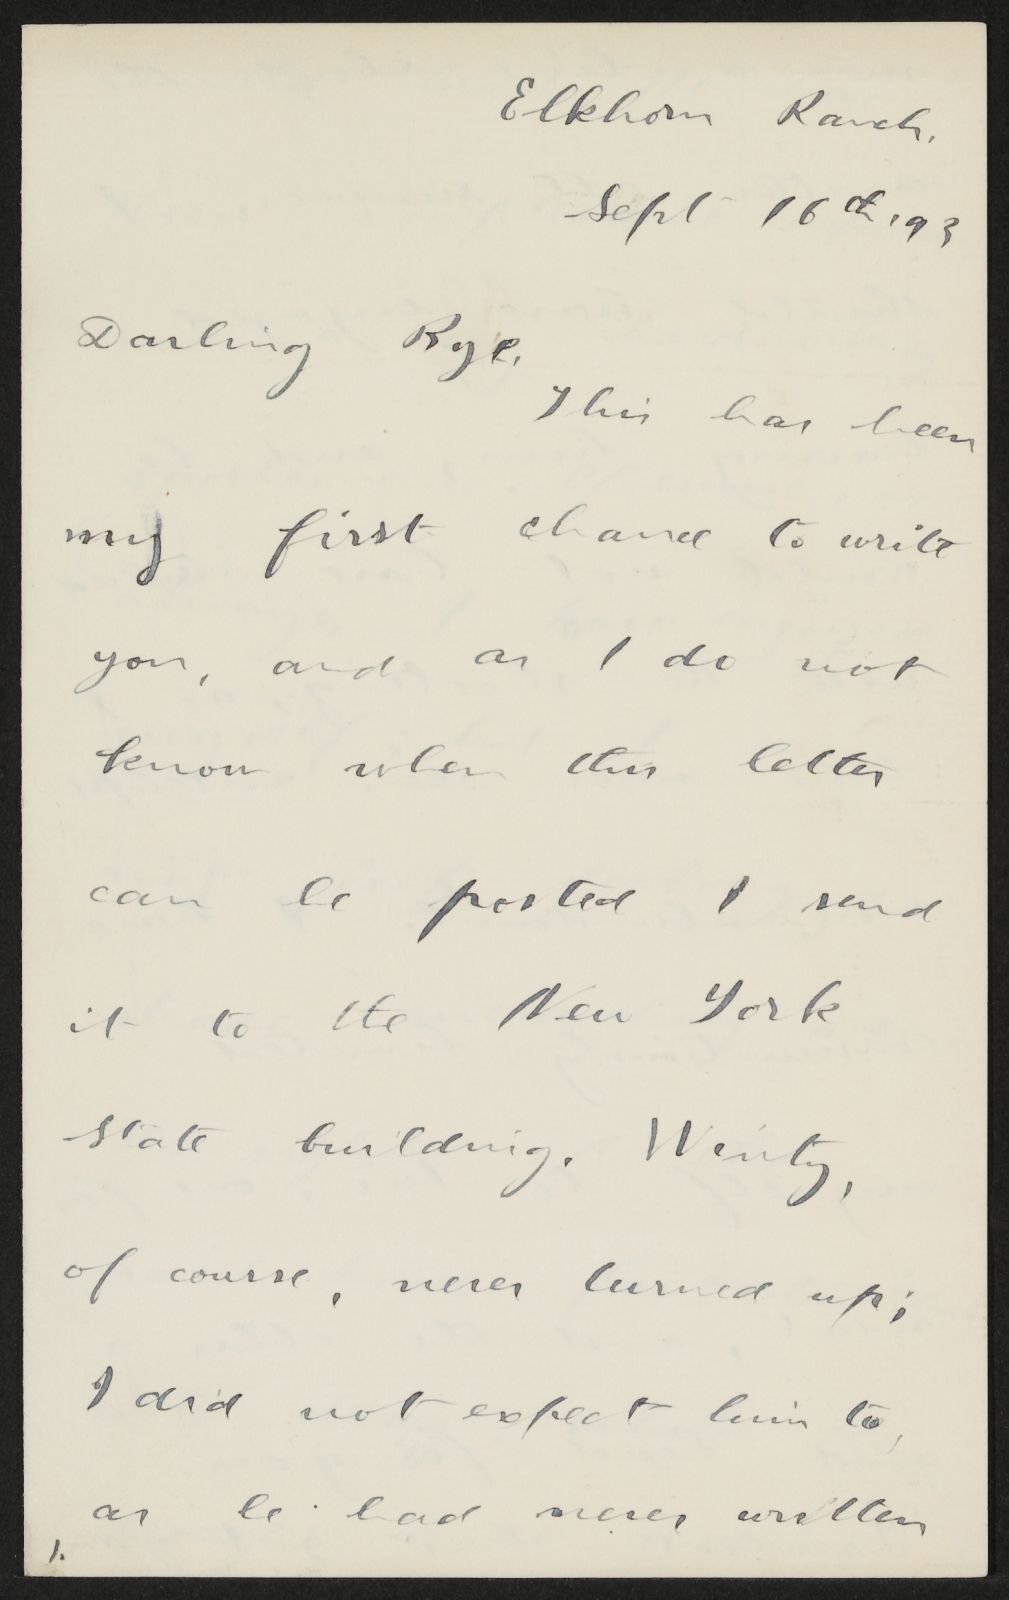 Elkhorn Ranch.
Sept 16th, 93
Darling Bye.
This has been
my first chance to write
you, and as I do not
know when this letter
can be posted I send
it to the New York
State building. Winty,
of course, never turned up;
I did not expect him to,
as he had never written
1.